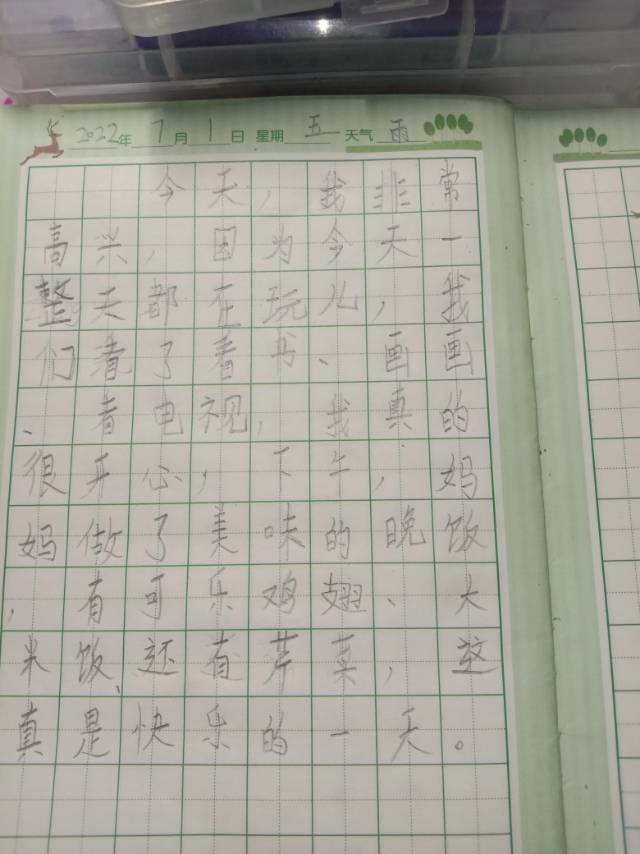 2022年 7月 1日 星期 五 天气 雨
今天，我非常
高兴，因为今天一
整天都在玩儿，我
们看了看书、画画
、看电视，我真的
很开心，下午，妈
妈做了美味的晚饭
，有可乐鸡翅、大
米饭、还有芹菜，这
真是快乐的一天。